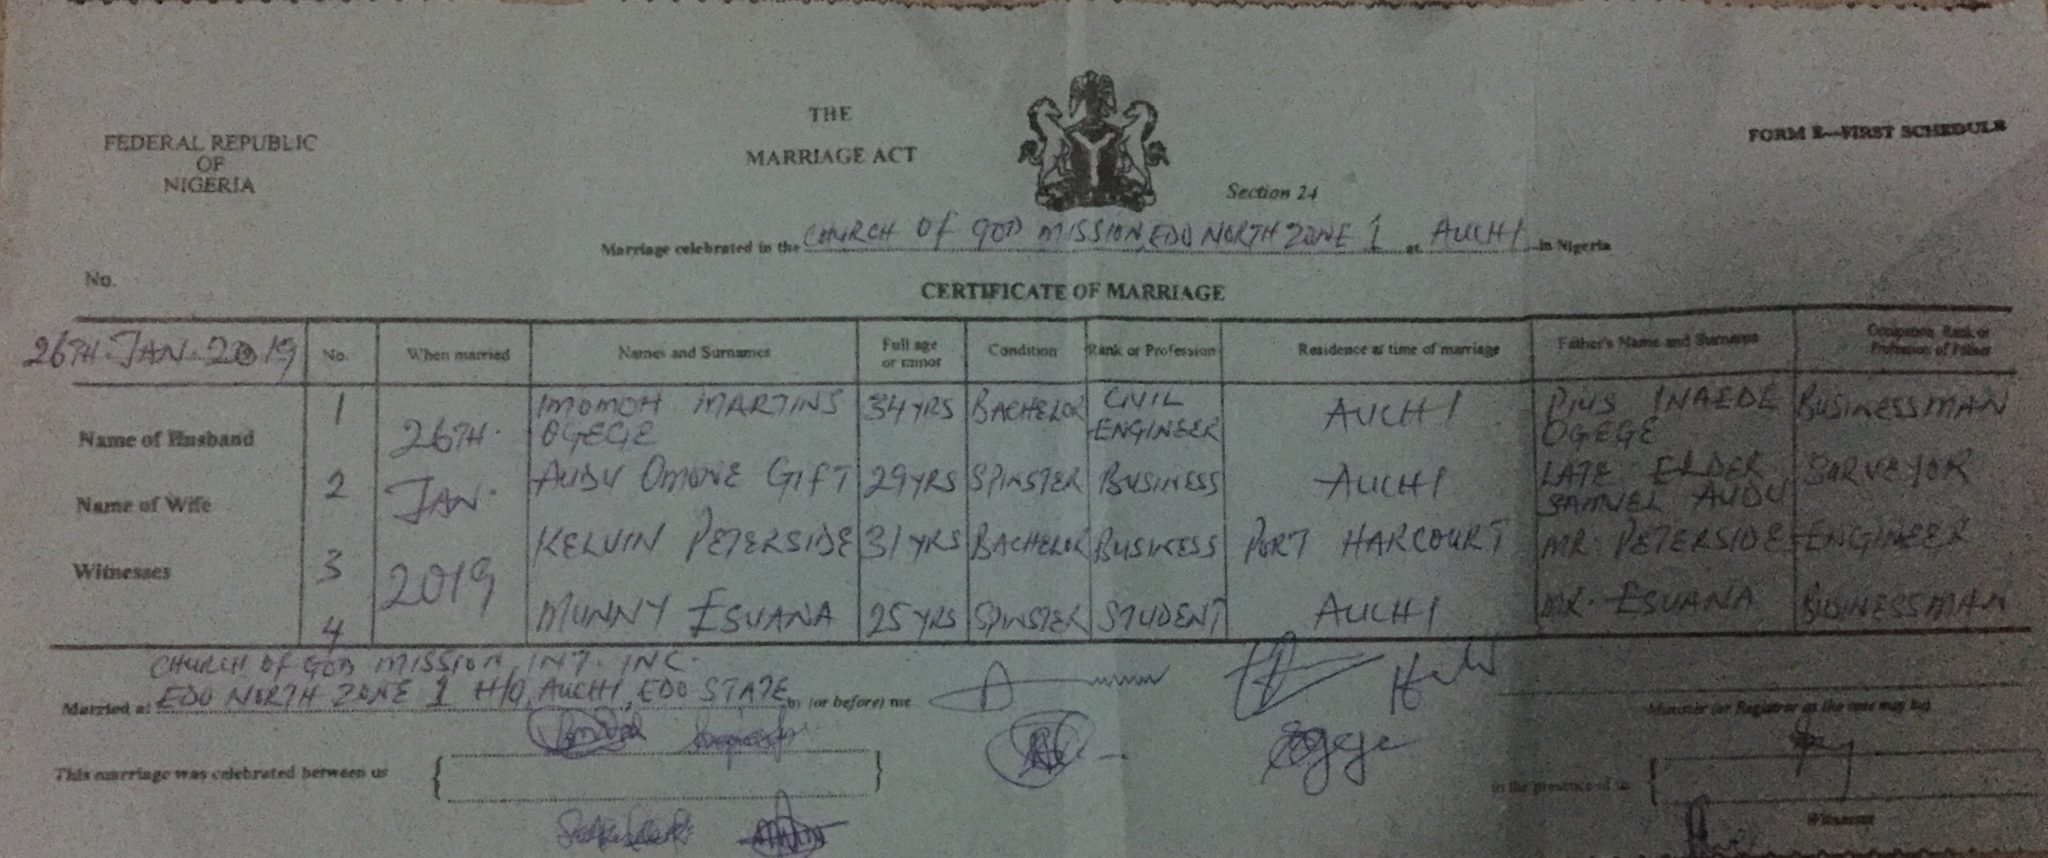 THE
MARRIAGE ACT
FEDERAL REPUBLIC
OF
NIGERIA
FORM E—FIRST SCHEDULE
Section 24
Marriage celebrated in the CHURCH OF GOD MISSION, EDO NORTH ZONE 1 at AUCHI in Nigeria
No.
CERTIFICATE OF MARRIAGE
26TH. JAN. 2019 No. When married Names and Surnames Full age or minor Condition Rank or Profession Residence at time of marriage Father's Name and Surname Occupation, Rank or Profession of Father
Name of Husband 1 IMOMOH MARTINS OGEGE 34 YRS BACHELOR CIVIL ENGINEER AUCHI PIUS INAEDE OGEGE BUSINESSMAN
26TH.
Name of Wife 2 AUDU OMONE GIFT 29 YRS SPINSTER BUSINESS AUCHI LATE ELDER SAMUEL AUDU SURVEYOR
JAN.
Witnesses 3 KELVIN PETERSIDE 31 YRS BACHELOR BUSINESS PORT HARCOURT MR. PETERSIDE ENGINEER
2019
4 MUNNY ESUANA 25 YRS SPINSTER STUDENT AUCHI MR. ESUANA BUSINESSMAN
CHURCH OF GOD MISSION INT. INC.
Married at EDO NORTH ZONE 1 H/Q, AUCHI, EDO STATE by (or before) me
Minister (or Registrar as the case may be)
Ogege
This marriage was celebrated between us
in the presence of us
Witnesses